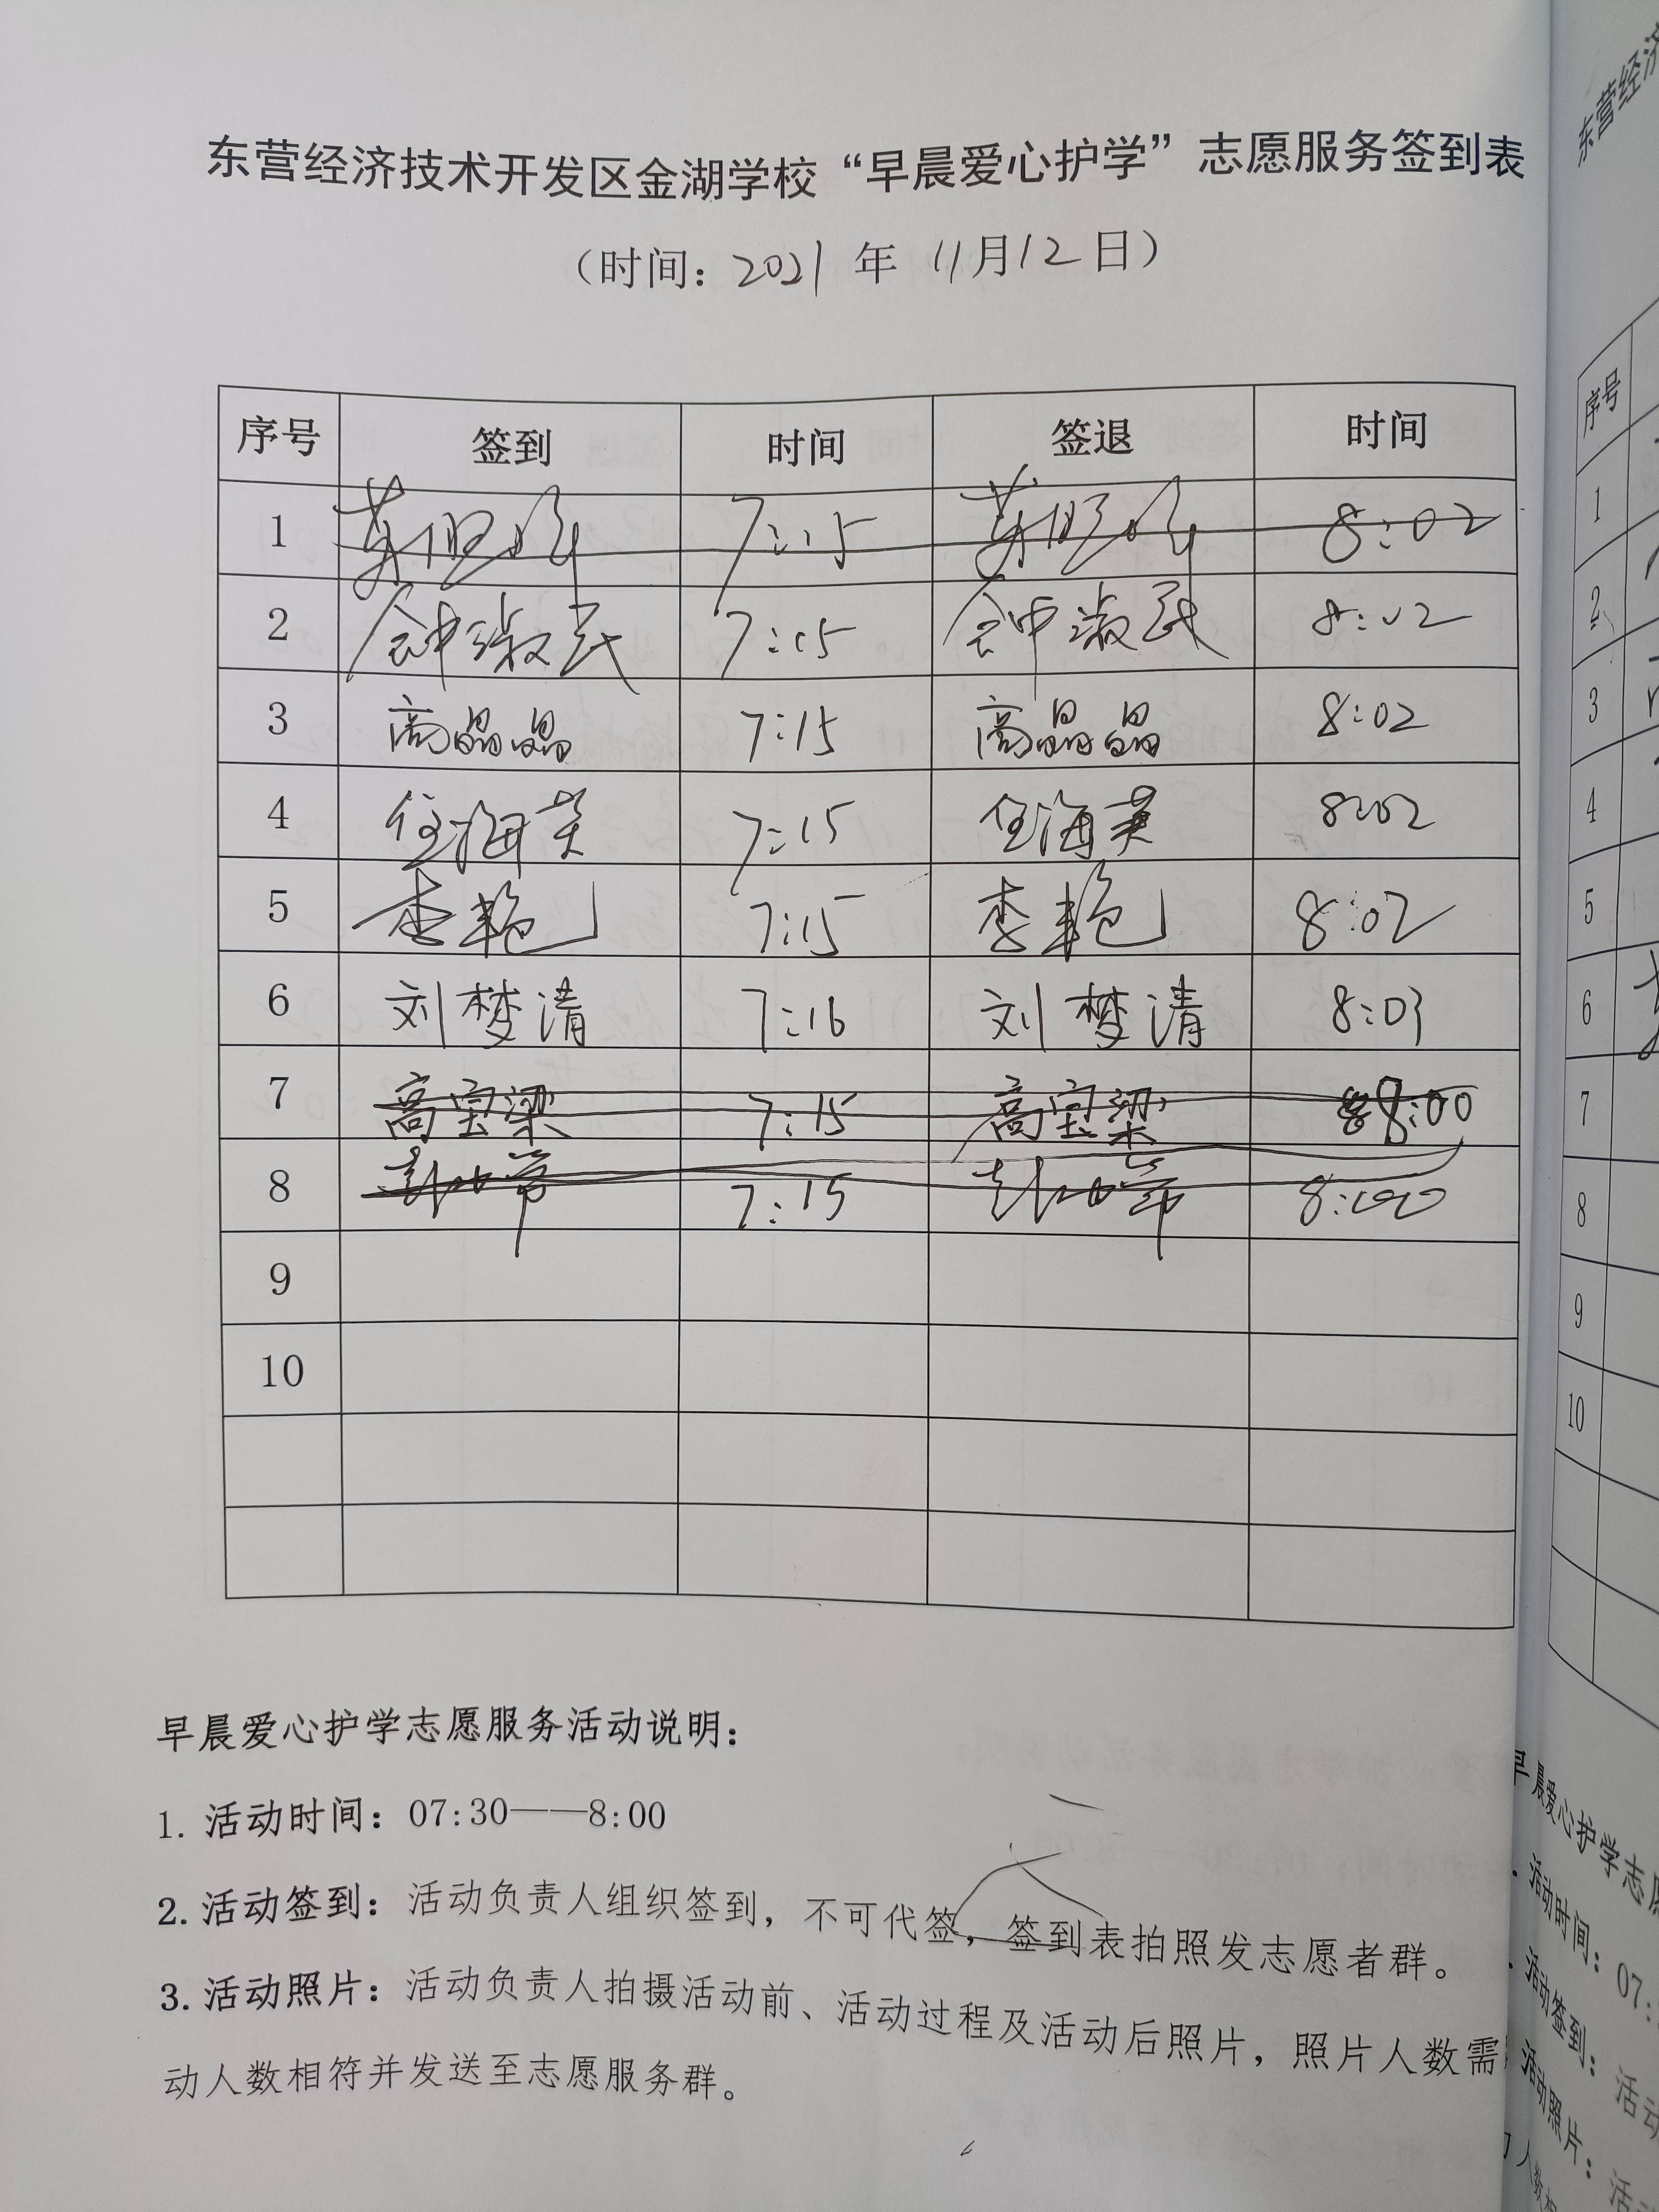 东营经济技术开发区金湖学校“早晨爱心护学”志愿服务签到表
（时间：2021 年 11月12日）
序号 签到 时间 签退 时间
1 7:15 8:02
2 钟淑民 7:15 钟淑民 8:02
3 高晶晶 7:15 高晶晶 8:02
4 任海英 7:15 任海英 8:02
5 李艳 7:15 李艳 8:02
6 刘梦清 7:16 刘梦清 8:03
7 高宝梁 7:15 高宝梁 8:00
8 7:15 8:00
9
10
早晨爱心护学志愿服务活动说明：
1. 活动时间：07:30——8:00
2. 活动签到：活动负责人组织签到，不可代签，签到表拍照发志愿者群。
3. 活动照片：活动负责人拍摄活动前、活动过程及活动后照片，照片人数需
动人数相符并发送至志愿服务群。
东营经济
序号
1
2
3
4
5
6
7
8
9
10
早晨爱心护学志愿
活动时间：07:
活动签到：活动
活动照片：活动